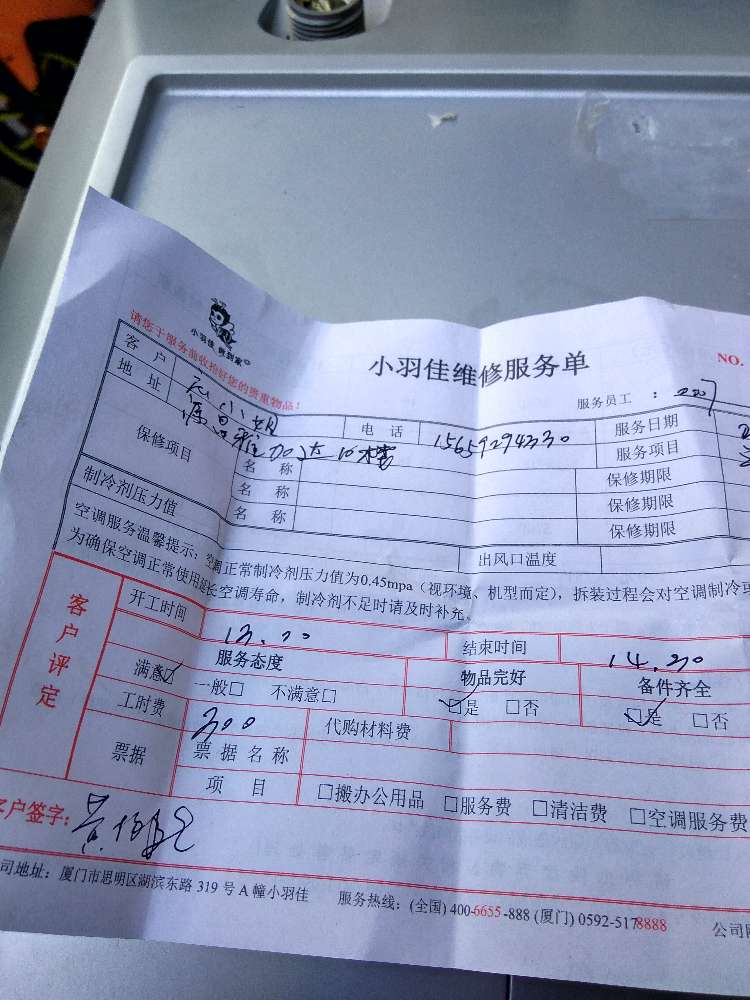 小羽佳 美到家
请您于服务前收拾好您的贵重物品!
小羽佳维修服务单
NO.
服务员工 :
客户 小姐 电话 15659294330 服务日期
地址 雅 服务项目
保修项目 名称 保修期限
名称 保修期限
名称 保修期限
制冷剂压力值 出风口温度
空调服务温馨提示:空调正常制冷剂压力值为0.45mpa(视环境、机型而定),拆装过程会对空调制冷
为确保空调正常使用延长空调寿命,制冷剂不足时请及时补充、
客户评定
开工时间 13.00 结束时间 14.30
服务态度 物品完好 备件齐全
满意□ 一般□ 不满意□ □是 □否 □是 □否
工时费 300 代购材料费
票据 票据名称
项目 □搬办公用品 □服务费 □清洁费 □空调服务费
户签字:
司地址:厦门市思明区湖滨东路 319 号 A 幢小羽佳 服务热线:(全国) 400-6655-888 (厦门) 0592-5178888 公司